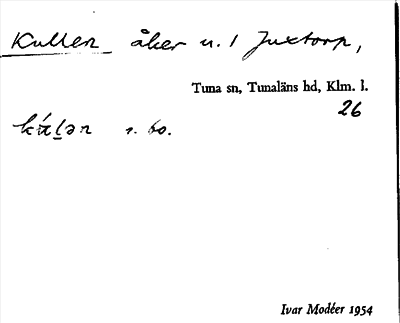 Kullen åker u. 1 Juxtorp,
Tuna sn, Tunaläns hd, Klm. l.
26
s. 60.
Ivar Modéer 1954